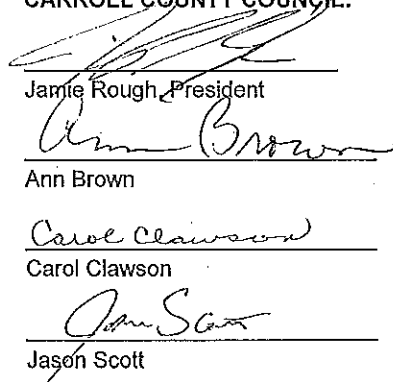 CARROLL COUNTY COUNCIL:
Jamie Rough, President
Ann Brown
Ann Brown
Carol Clawson
Carol Clawson
Jason Scott
Jason Scott